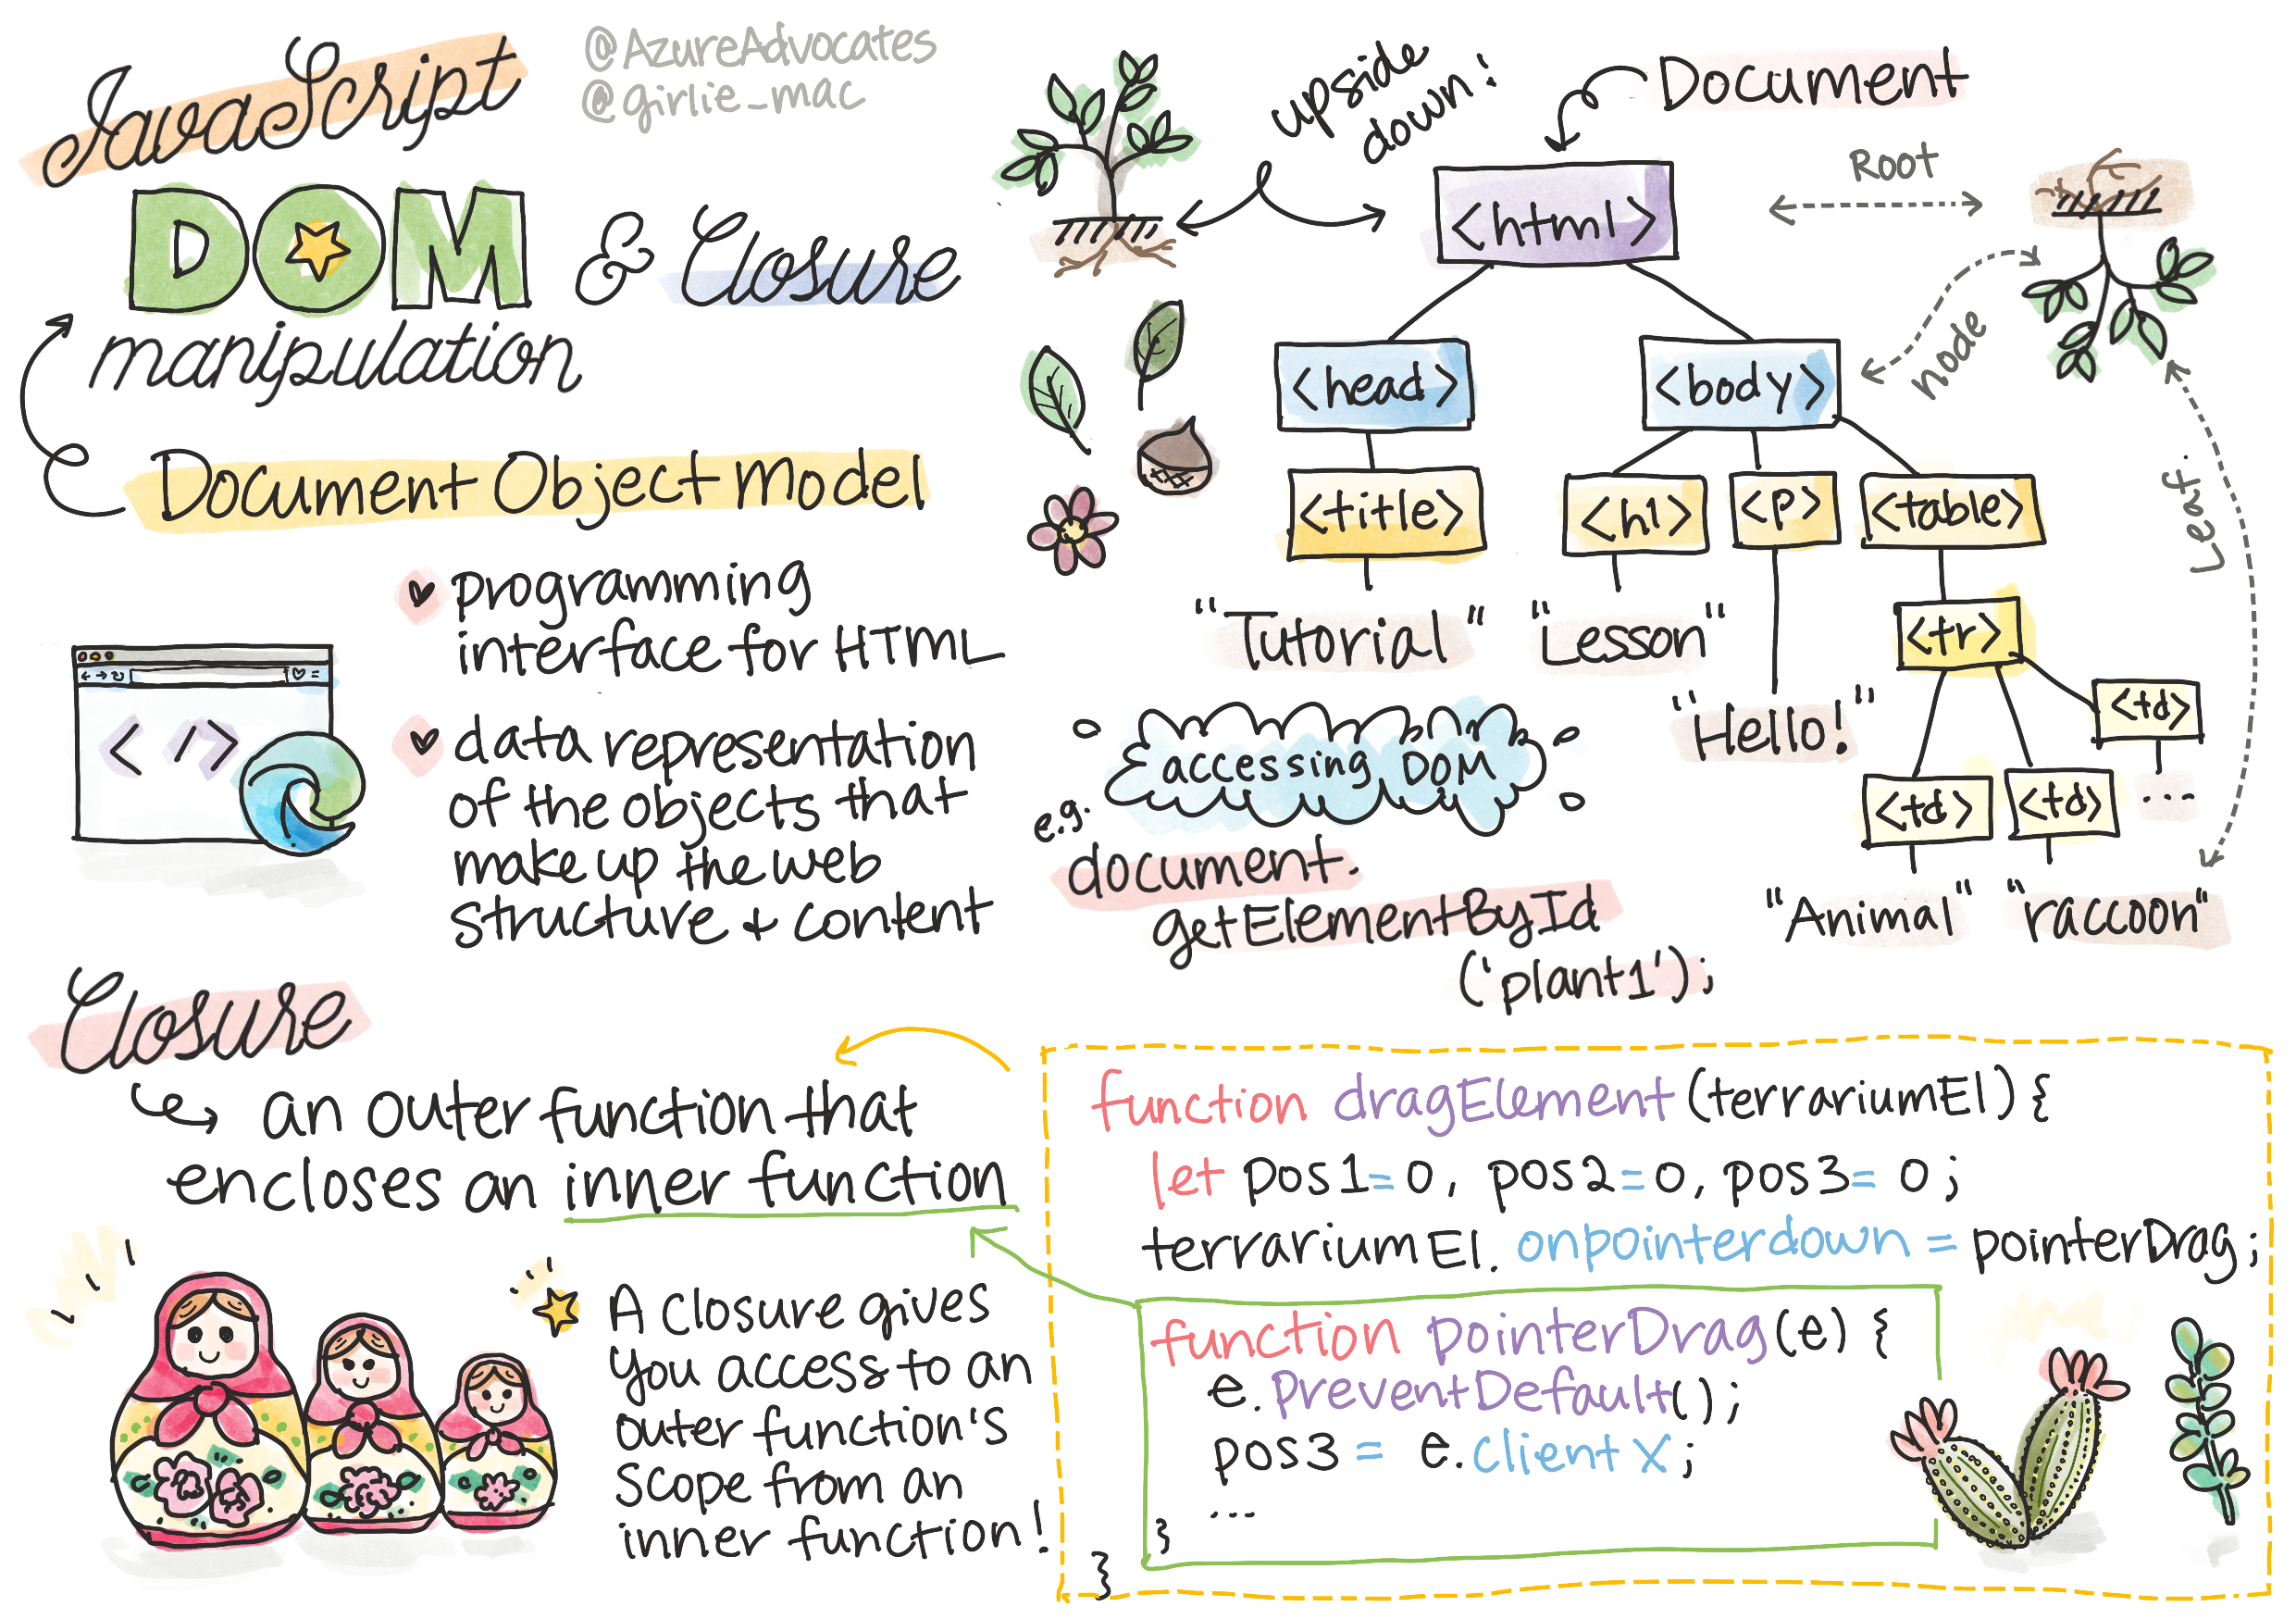 JavaScript
DOM
& Closure
manipulation
@AzureAdvocates
@girlie_mac
Document Object Model
programming
interface for HTML
data representation
of the objects that
make up the web
structure & content
< />
upside
down!
Document
Root
node
Leaf
<html>
<head>
<body>
<title>
<h1>
<p>
<table>
"Tutorial"
"Lesson"
"Hello!"
<tr>
<td>
<td>
<td>
...
"Animal"
"raccoon"
accessing DOM
e.g.
document.
getElementById
('plant1');
Closure
an outer function that
encloses an inner function
A closure gives
you access to an
outer function's
scope from an
inner function!
function dragElement (terrariumEl) {
let pos1=0, pos2=0, pos3= 0;
terrariumEl. onpointerdown = pointerDrag;
function pointerDrag(e) {
e.preventDefault();
pos3 = e.clientX;
...
}
}